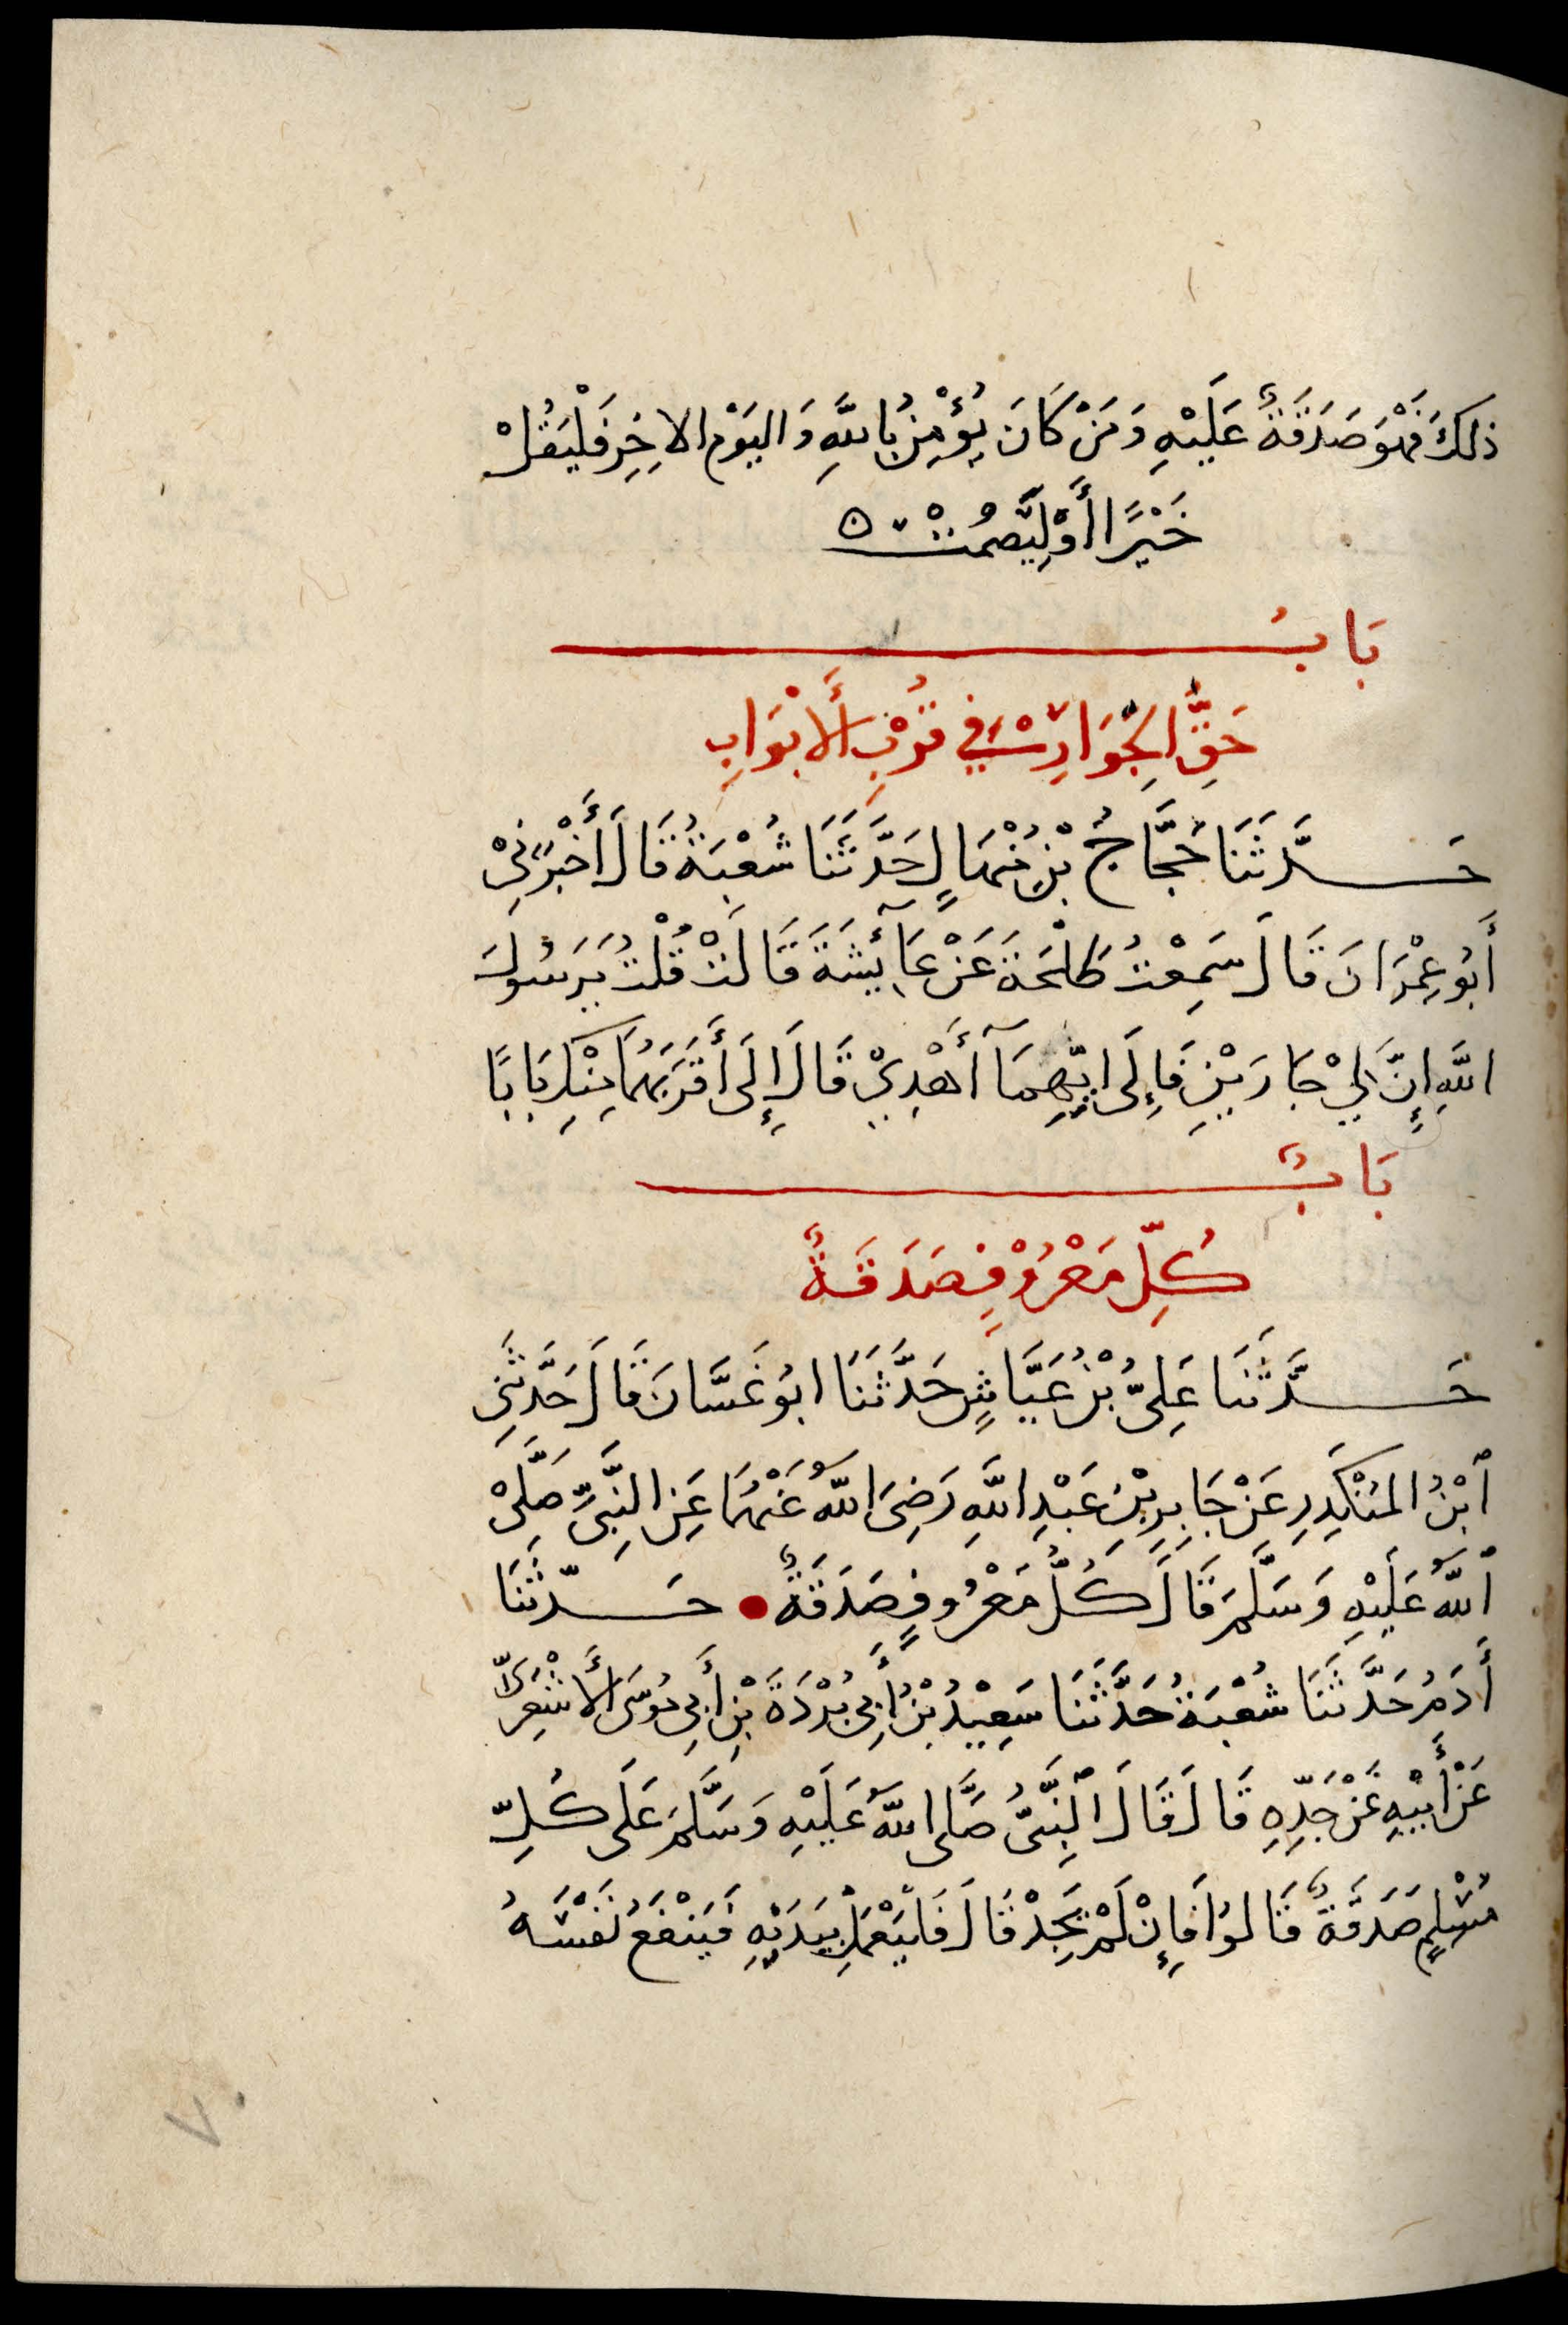 ذلِكَ فَهْوَ صَدَقَةٌ عَلَيْهِ وَمَنْ كَانَ يُؤْمِنُ بِاللَّهِ وَاليَوْمِ الاخِرِ فَلْيَقُلْ
خَيْرًا أَوْ لِيَصْمُتْ ه
بَابُ
حَقِّ الجِوَارِ فِي قُرْبِ الأَبْوَابِ
حَدَّثَنَا حَجَّاجُ بْنُ مِنْهَالٍ حَدَّثَنَا شُعْبَةُ قَالَ أَخْبَرَنِيْ
أَبُو عِمْرَانَ قَالَ سَمِعْتُ طَلْحَةَ عَنْ عَآئِشَةَ قَالَتْ قُلْتُ يَرَسُولَ
اللَّهِ إِنَّ لِيْ جَارَيْنِ فَإِلَى ايِّهِمَآ أُهْدِيْ قَالَ إِلَى أَقْرَبِهِمَا مِنْكِ بَابًا
بَابٌ
كُلِّ مَعْرُوْفٍ صَدَقَةٌ
حَدَّثَنَا عَلِىُّ بْنُ عَيَّاشٍ حَدَّثَنَا ابُو غَسَّانَ قَالَ حَدَّثَنِى
ٱبْنُ المُنْكَدِرِ عَنْ جَابِرِ بْنِ عَبْدِ اللَّهِ رَضِىَ اللَّهُ عَنْهُمَا عَنِ النَّبِىِّ صَلَّىْ
ٱللَّهُ عَلَيْهِ وَسَلَّمَ قَالَ كُلُّ مَعْرُوفٍ صَدَقَةٌ • حَدَّثَنَا
أَدَمُ حَدَّثَنَا شُعْبَةُ حَدَّثَنَا سَعِيْدُ بْنُ أَبِى بُرْدَةَ بْنِ أَبِى مُوسَى الأَشْعَرِىِّ
عَنْ أَبِيْهِ عَنْ جَدِّهِ قَالَ قَالَ ٱلنَّبِىُّ صَلَّى اللَّهُ عَلَيْهِ وَسَلَّمَ عَلَى كُلِّ
مُسْلِمٍ صَدَقَةٌ قَالُوا فَإِنْ لَمْ يَجِدْ قَالَ فَليَعْمَلْ بِيَدَيْهِ فَيَنْفَعُ نَفْسَهُ
٧